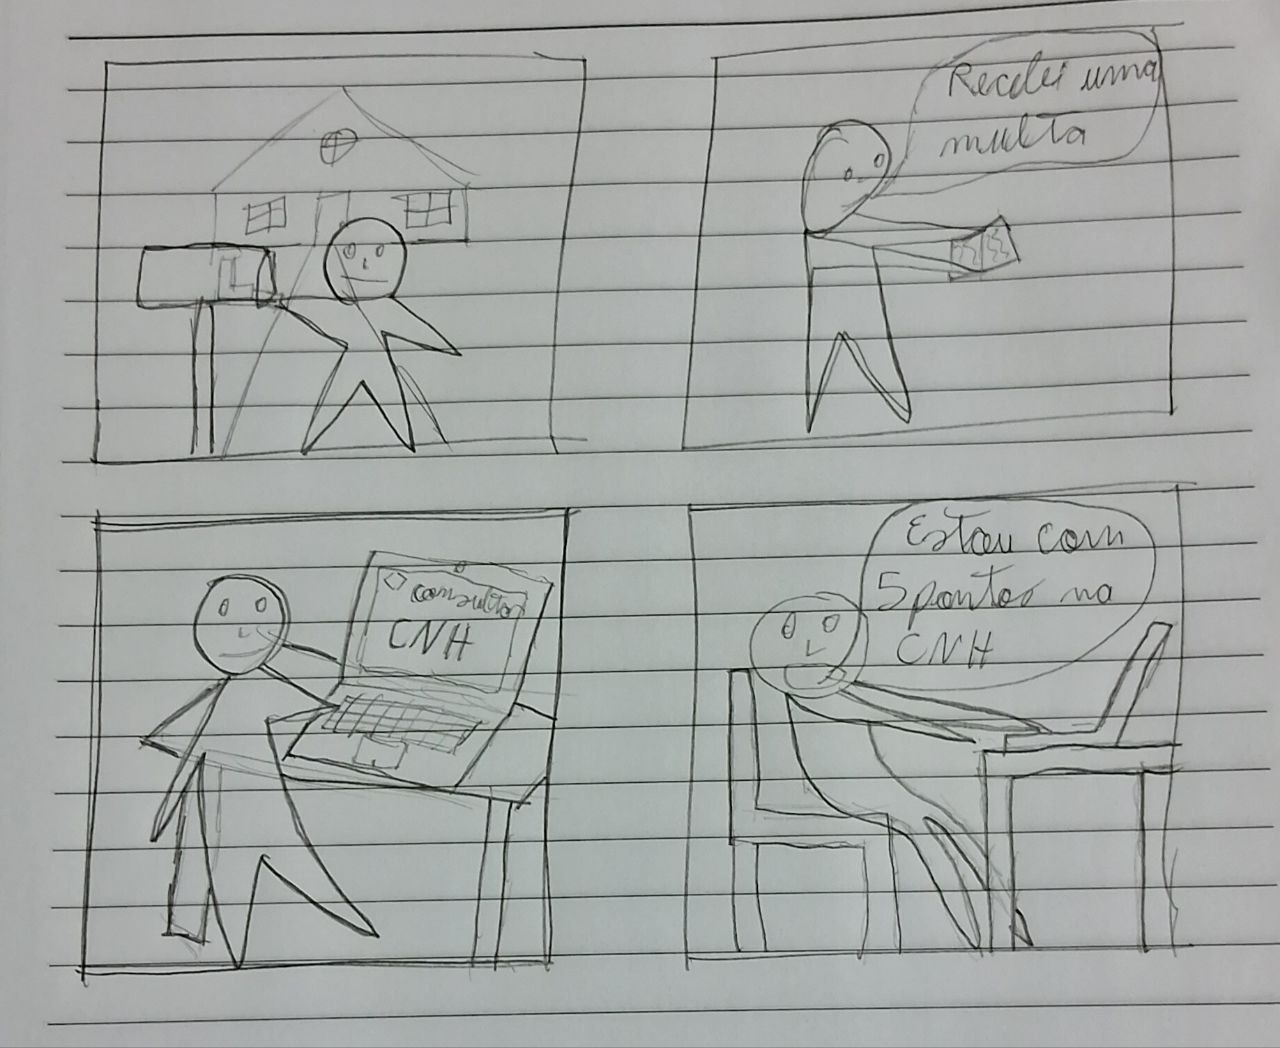 Recebi uma
multa
consultar
CNH
Estou com
5 pontos na
CNH